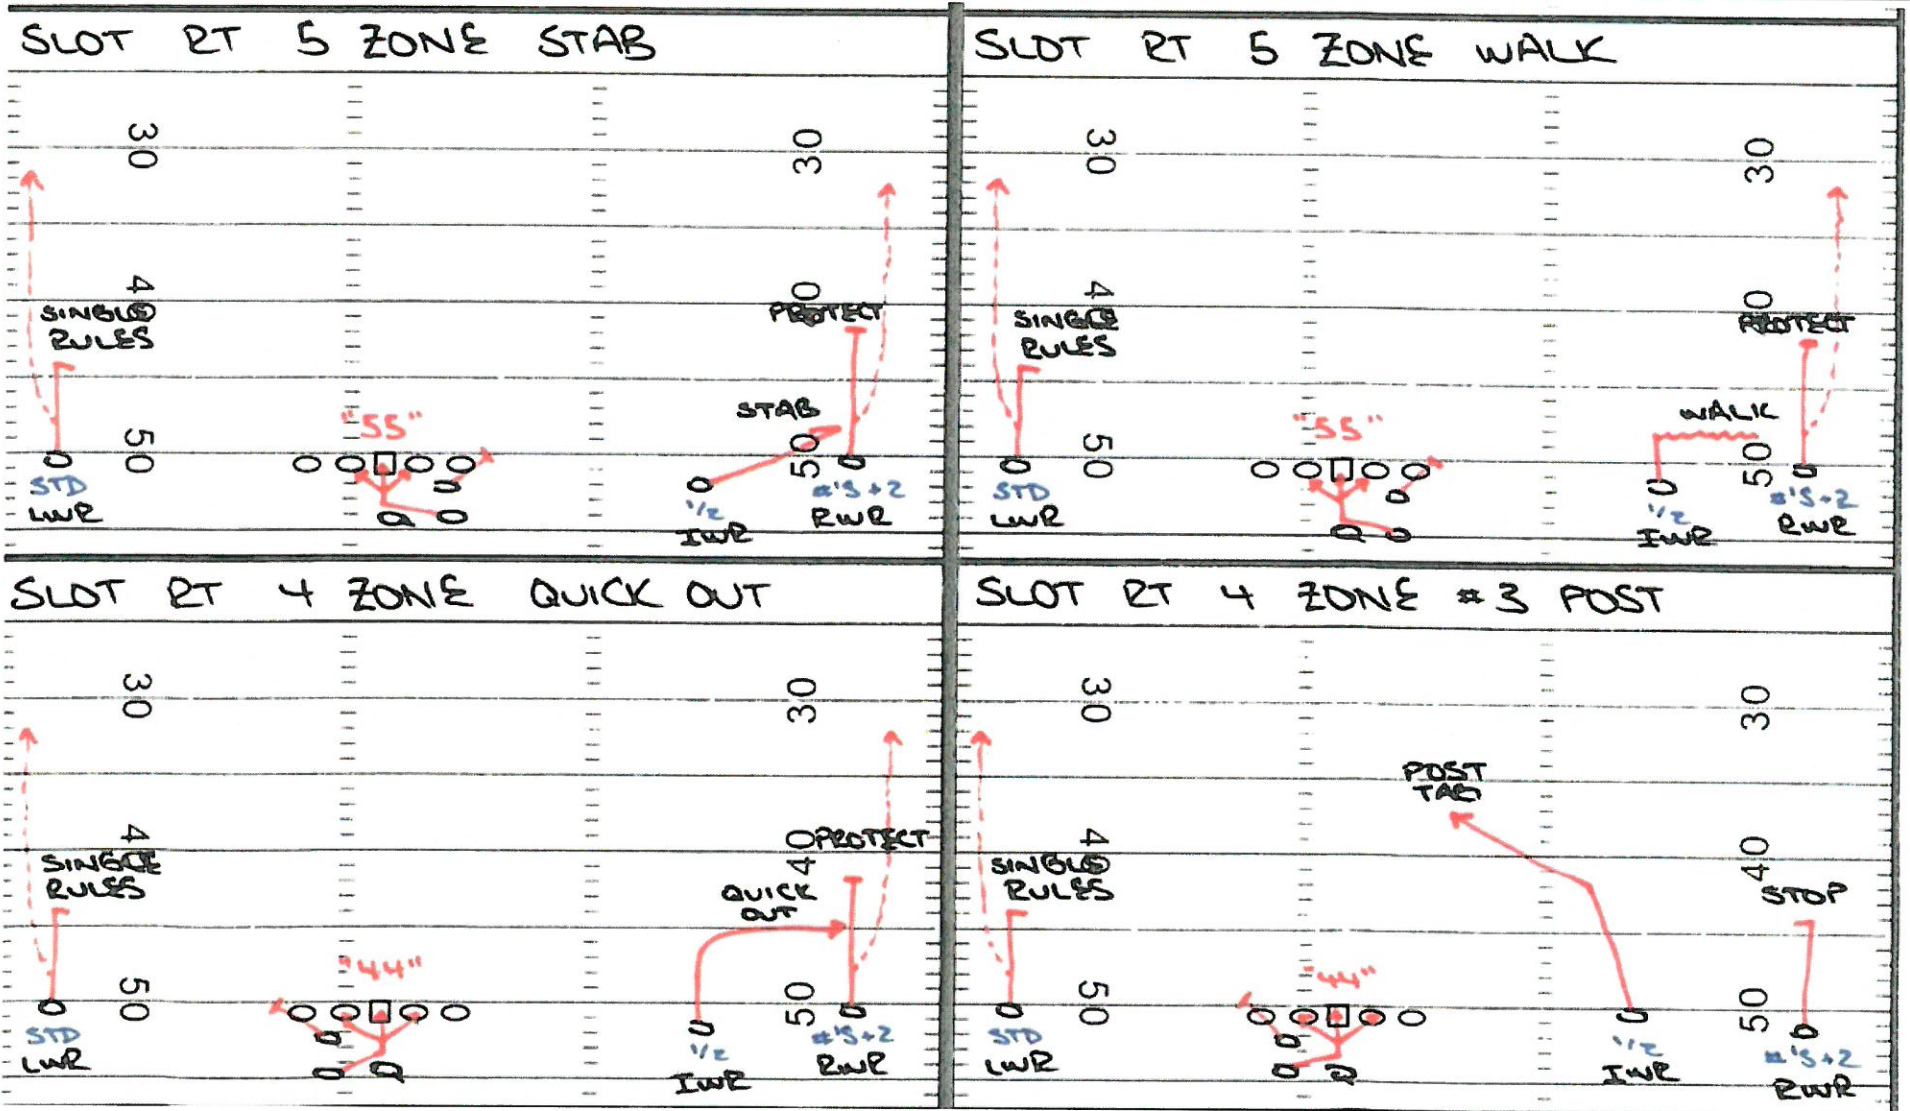 SLOT RT 5 ZONE STAB
30
30
40
40
SINGLE
RULES
PROTECT
"55"
STAB
50
50
STD
LWR
1/2
IWR
#'S+2
RWR
SLOT RT 5 ZONE WALK
30
30
40
40
SINGLE
RULES
PROTECT
"55"
WALK
50
50
STD
LWR
1/2
IWR
#'S+2
RWR
SLOT RT 4 ZONE QUICK OUT
30
30
40
40
PROTECT
SINGLE
RULES
QUICK
OUT
"44"
50
50
STD
LWR
1/2
IWR
#'S+2
RWR
SLOT RT 4 ZONE #3 POST
30
30
POST
TAG
40
40
SINGLE
RULES
STOP
"44"
50
50
STD
LWR
1/2
IWR
#'S+2
RWR